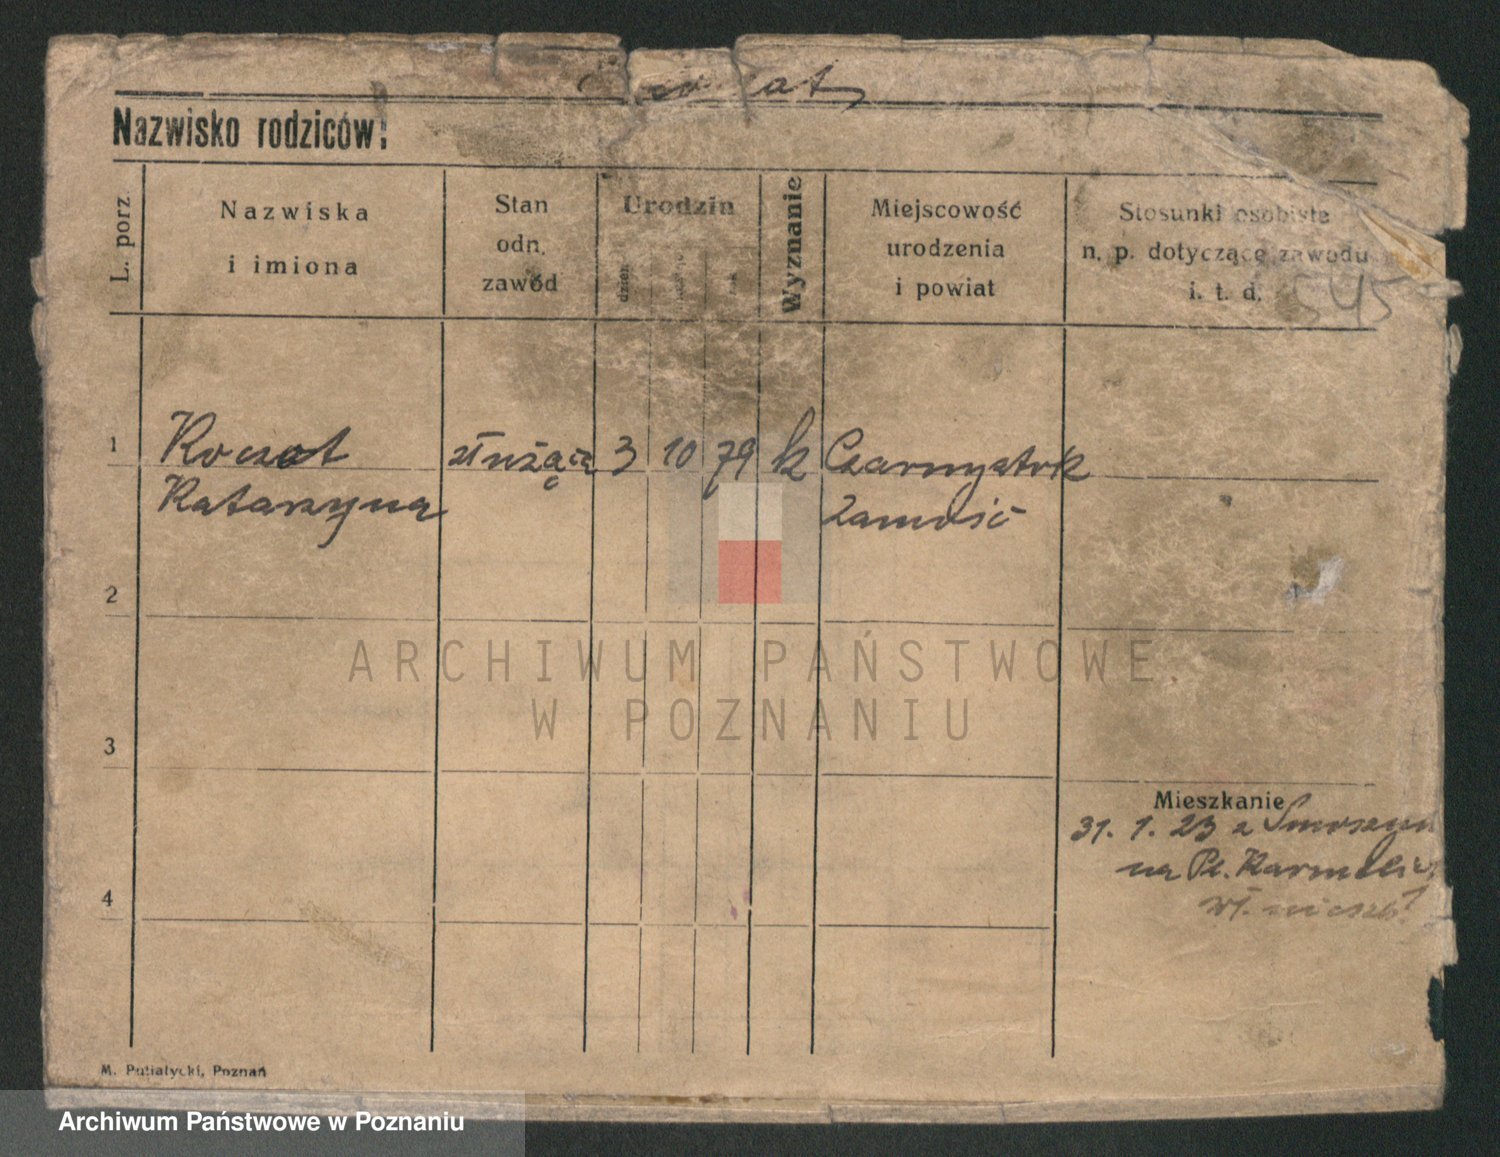 Nazwisko rodziców:
L. porz.
Nazwiska
i imiona
Stan
odn.
zawód
Urodzin
dzień
Wyznanie
Miejscowość
urodzenia
i powiat
Stosunki osobiste
n. p. dotyczące zawodu
i. t. d.
545
1
Koczot służąca 3 10 79 k Czarnystok
Katarzyna Zamość
2
ARCHIWUM PAŃSTWOWE
W POZNANIU
3
Mieszkanie
31. 1. 23 z
na Pl. Karmelic
4
M. Putiatycki, Poznań
Archiwum Państwowe w Poznaniu